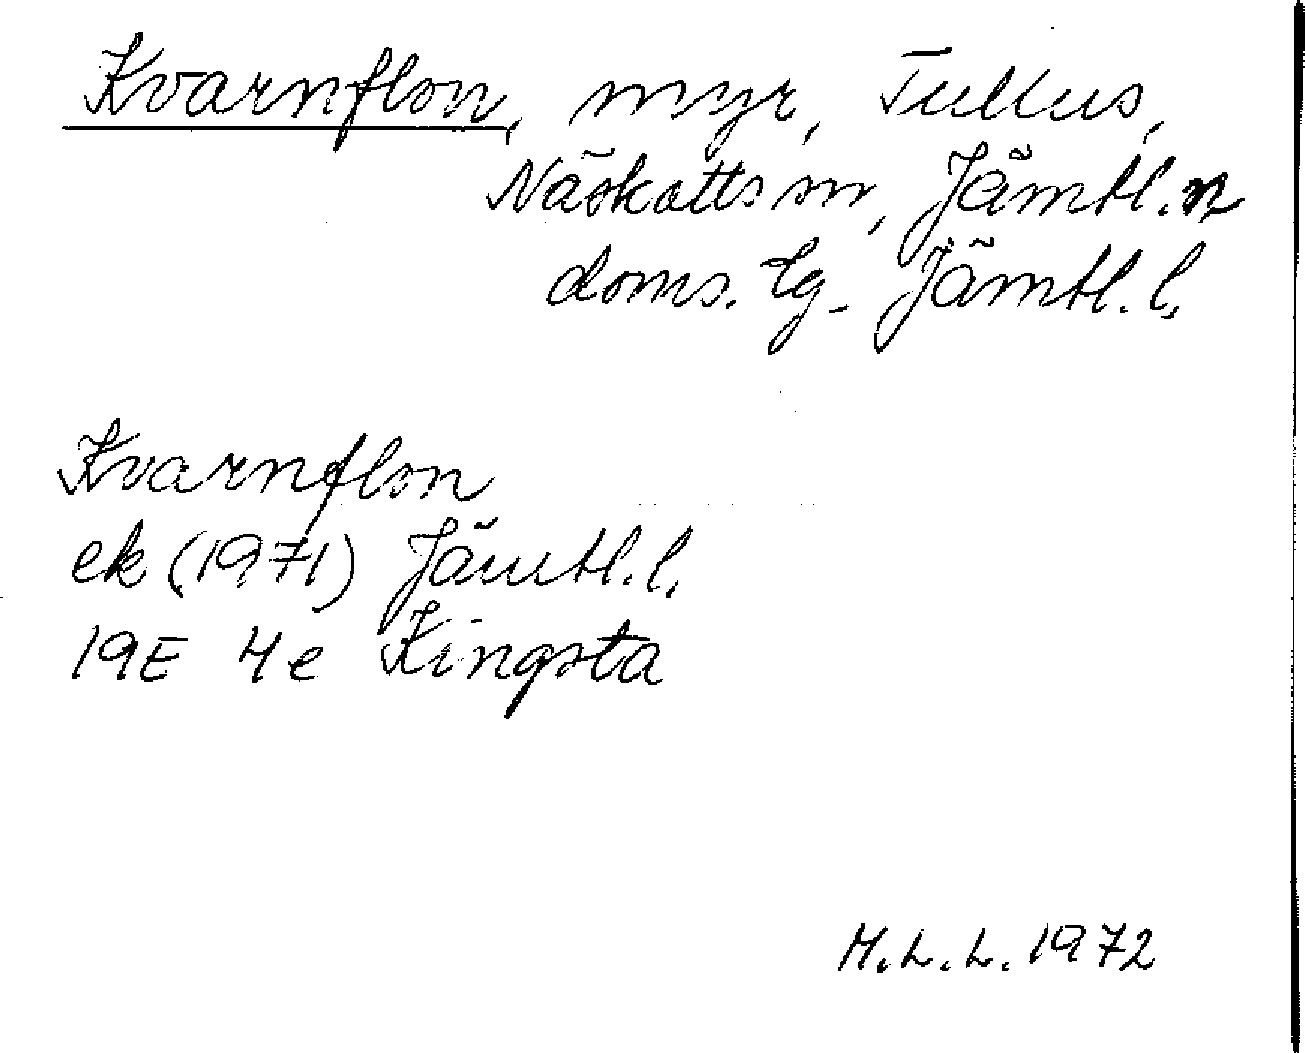 Kvarnflon, myr, Tullus,
Näskotts sn, Jämtl. n
doms. tg. Jämtl. l.
Kvarnflon
ek (1971) Jämtl. l.
19E 4e Kingsta
M.L.L. 1972